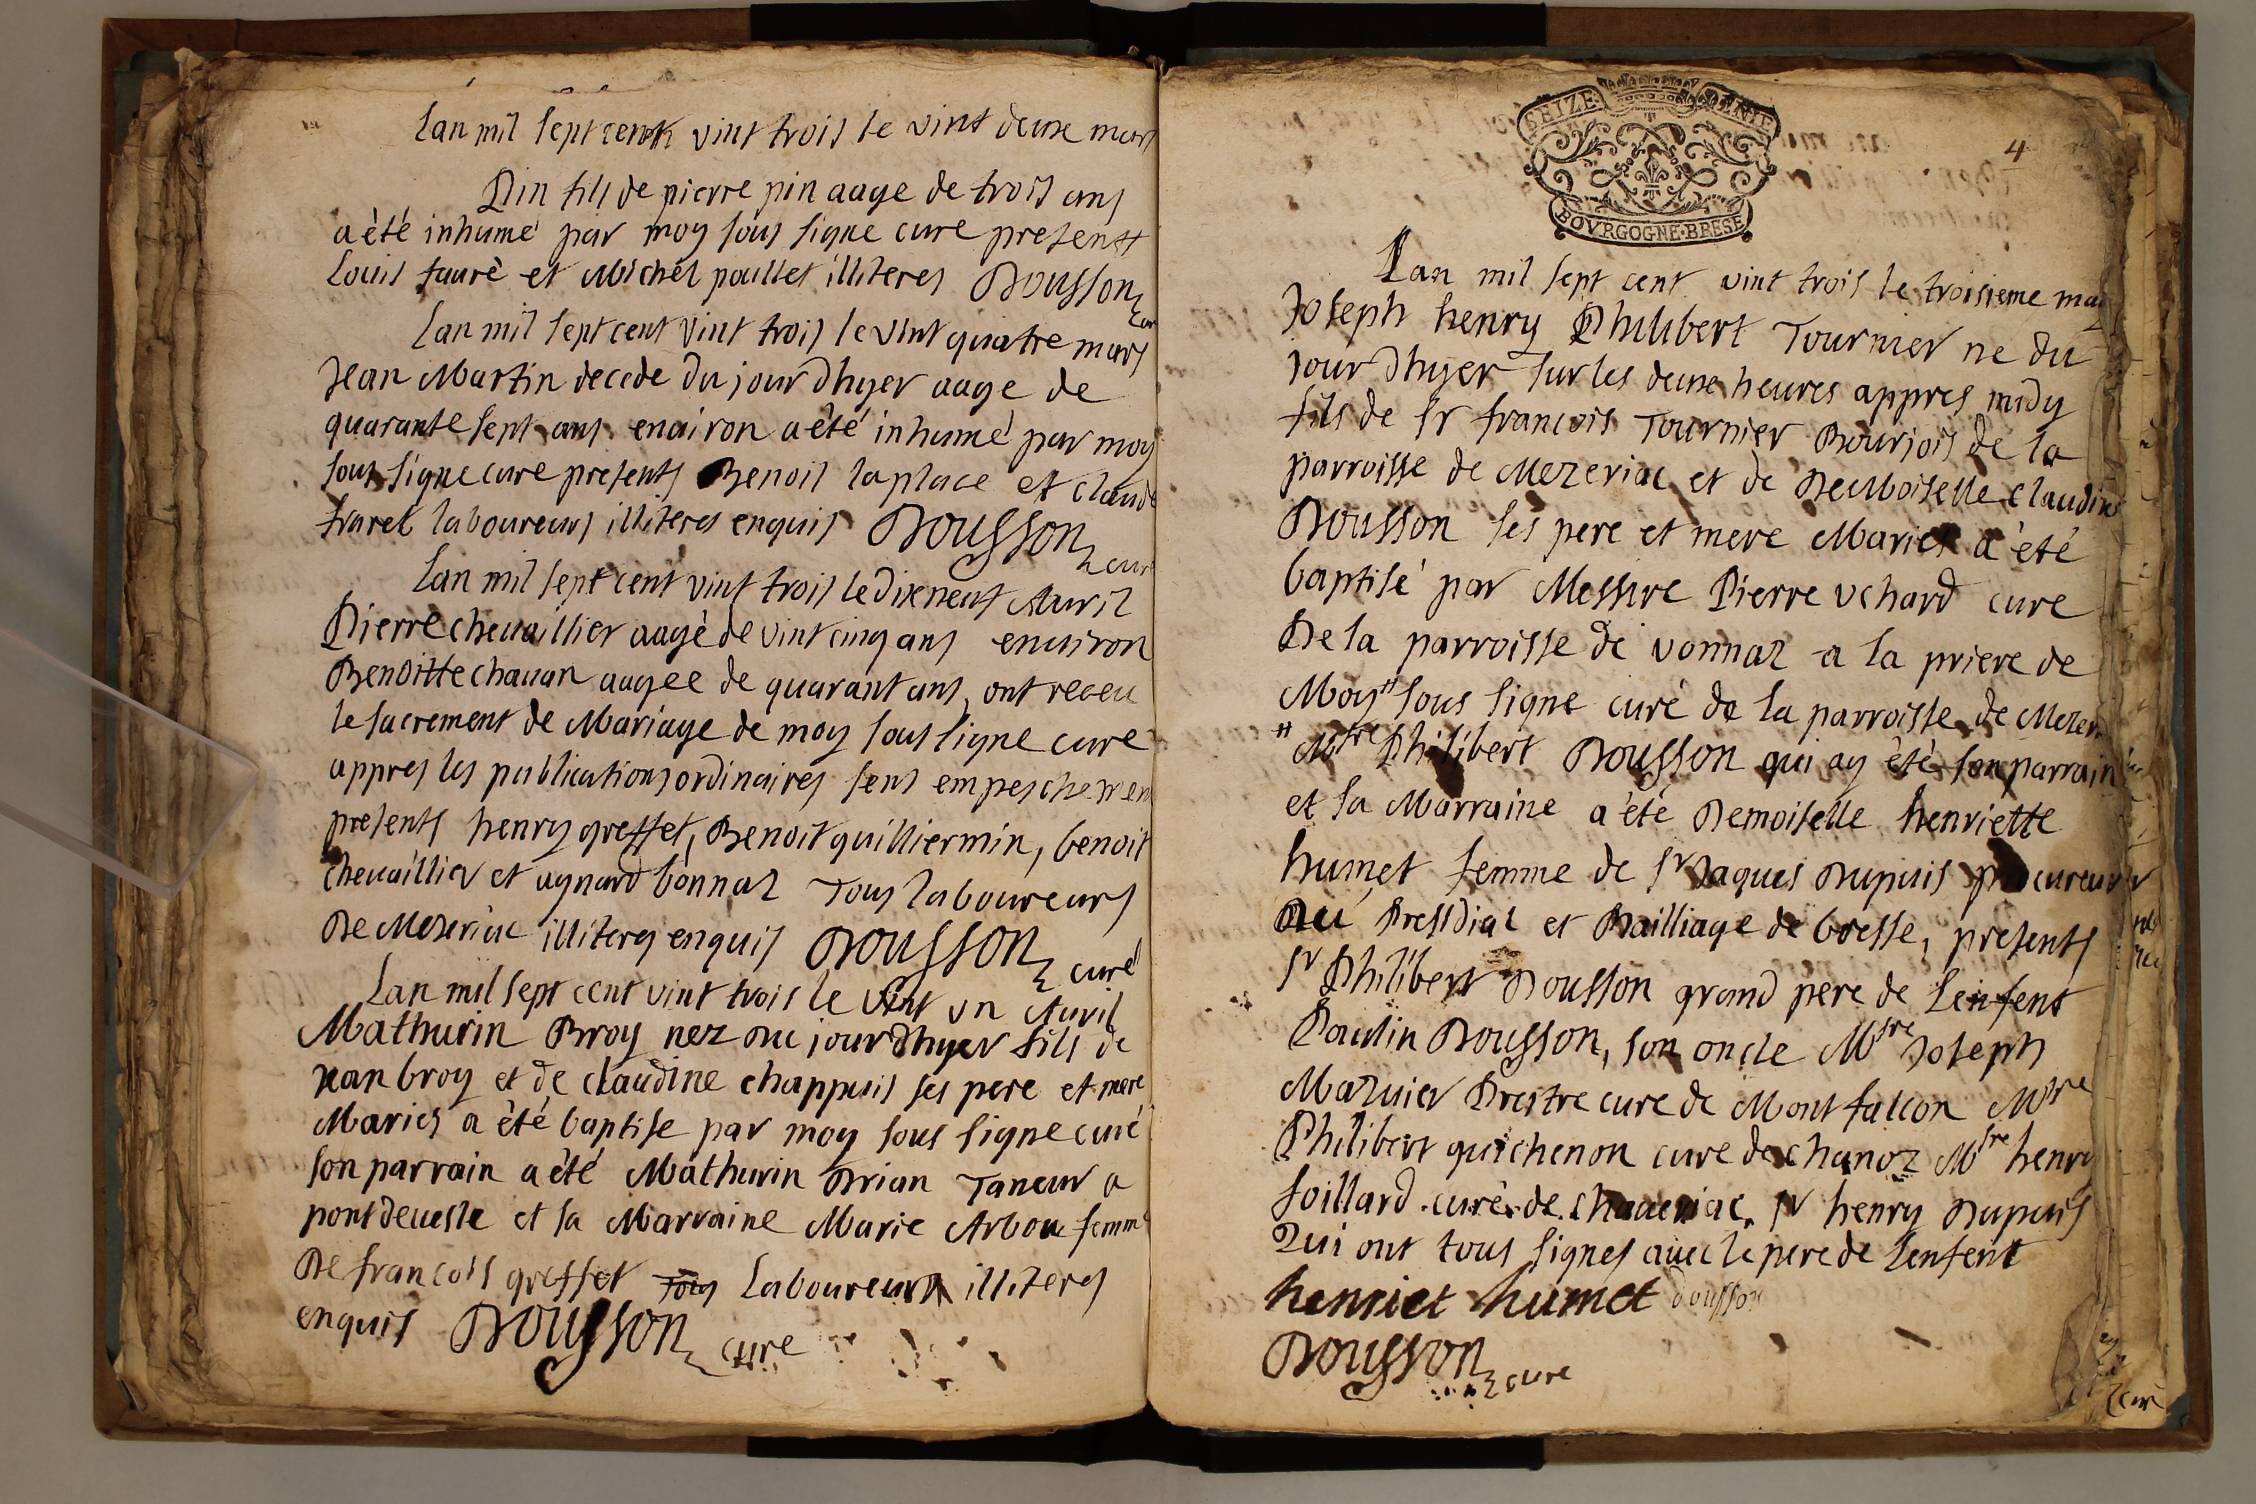 Lan mil sept cent vint trois le vint deuxe mars
Pin fils de pierre pin aage de trois ans
a èté inhumé par moy sous signe cure presents
Louis fauré et Michel poullet illiteres Dousson cur
Lan mil sept cent vint trois le vint quatre mars
Jean Martin decede du jour dhyer aage de
quarante sept ans enuiron a èté inhumé par moy
sous signe cure presents Benoit laplace et claude
laboureurs illiteres enquis Dousson cure
Lan mil sept cent vint trois le dixneuf Auril
Pierre cheuaillier aagé de vint cinq ans enuiron
Benoitte chauan aagee de quarant ans, ont receu
le sacrement de Mariage de moy sous signe cure
appres les publications ordinaires sens empeschemen
presents henry greffet, Benoit guilliermin, benoit
cheuaillier et aynard bonnaz Tous laboureurs
De Mezeriac illiteres enquis Dousson curé
Lan mil sept cent vint trois le vint vn Auril
Mathurin Broy nez du jour dhyer fils de
jean broy et de claudine chappuis ses pere et mere
Mariés a èté baptise par moy sous signe curé
son parrain a èté Mathurin Brian Taneur a
pontdeuesle et sa Marraine Marie Arbou femme
De francois greffet Laboureurs illiteres
enquis Dousson cure
SEIZE
BOVRGOGNE·BRESE
4
Lan mil sept cent vint trois le troisieme may
Joseph henry Philibert Tournier ne du
jour dhyer sur les deuxe heures appres midy
fils de sr francois Tournier Bourjois de la
parroisse de Mezeriac et de DeMoiselle claudine
Dousson ses pere et mere Mariés a èté
baptisé par Messire Pierre vchard cure
De la parroisse de vonnaz a la priere de
Moy" sous signe curé de la parroisse de Mezer
" Mtre Philibert Dousson qui ay èté son parrain
et sa Marraine a èté Demoiselle henriette
humet femme de sr Jaques Dupuis procureur
au Presidial et Bailliage de bresse, presents
sr Philibert Dousson grand pere de Lenfent
Paulin Dousson, son oncle Msre Joseph
Maznier Prestre cure de Montfalcon Msre
Philibert guichenon cure de chanoz Msre henry
foillard curé de chaueriac, sr henry Dupuis
Qui ont tous signes auec le pere de Lenfent
henriet humet dousson
Dousson cure